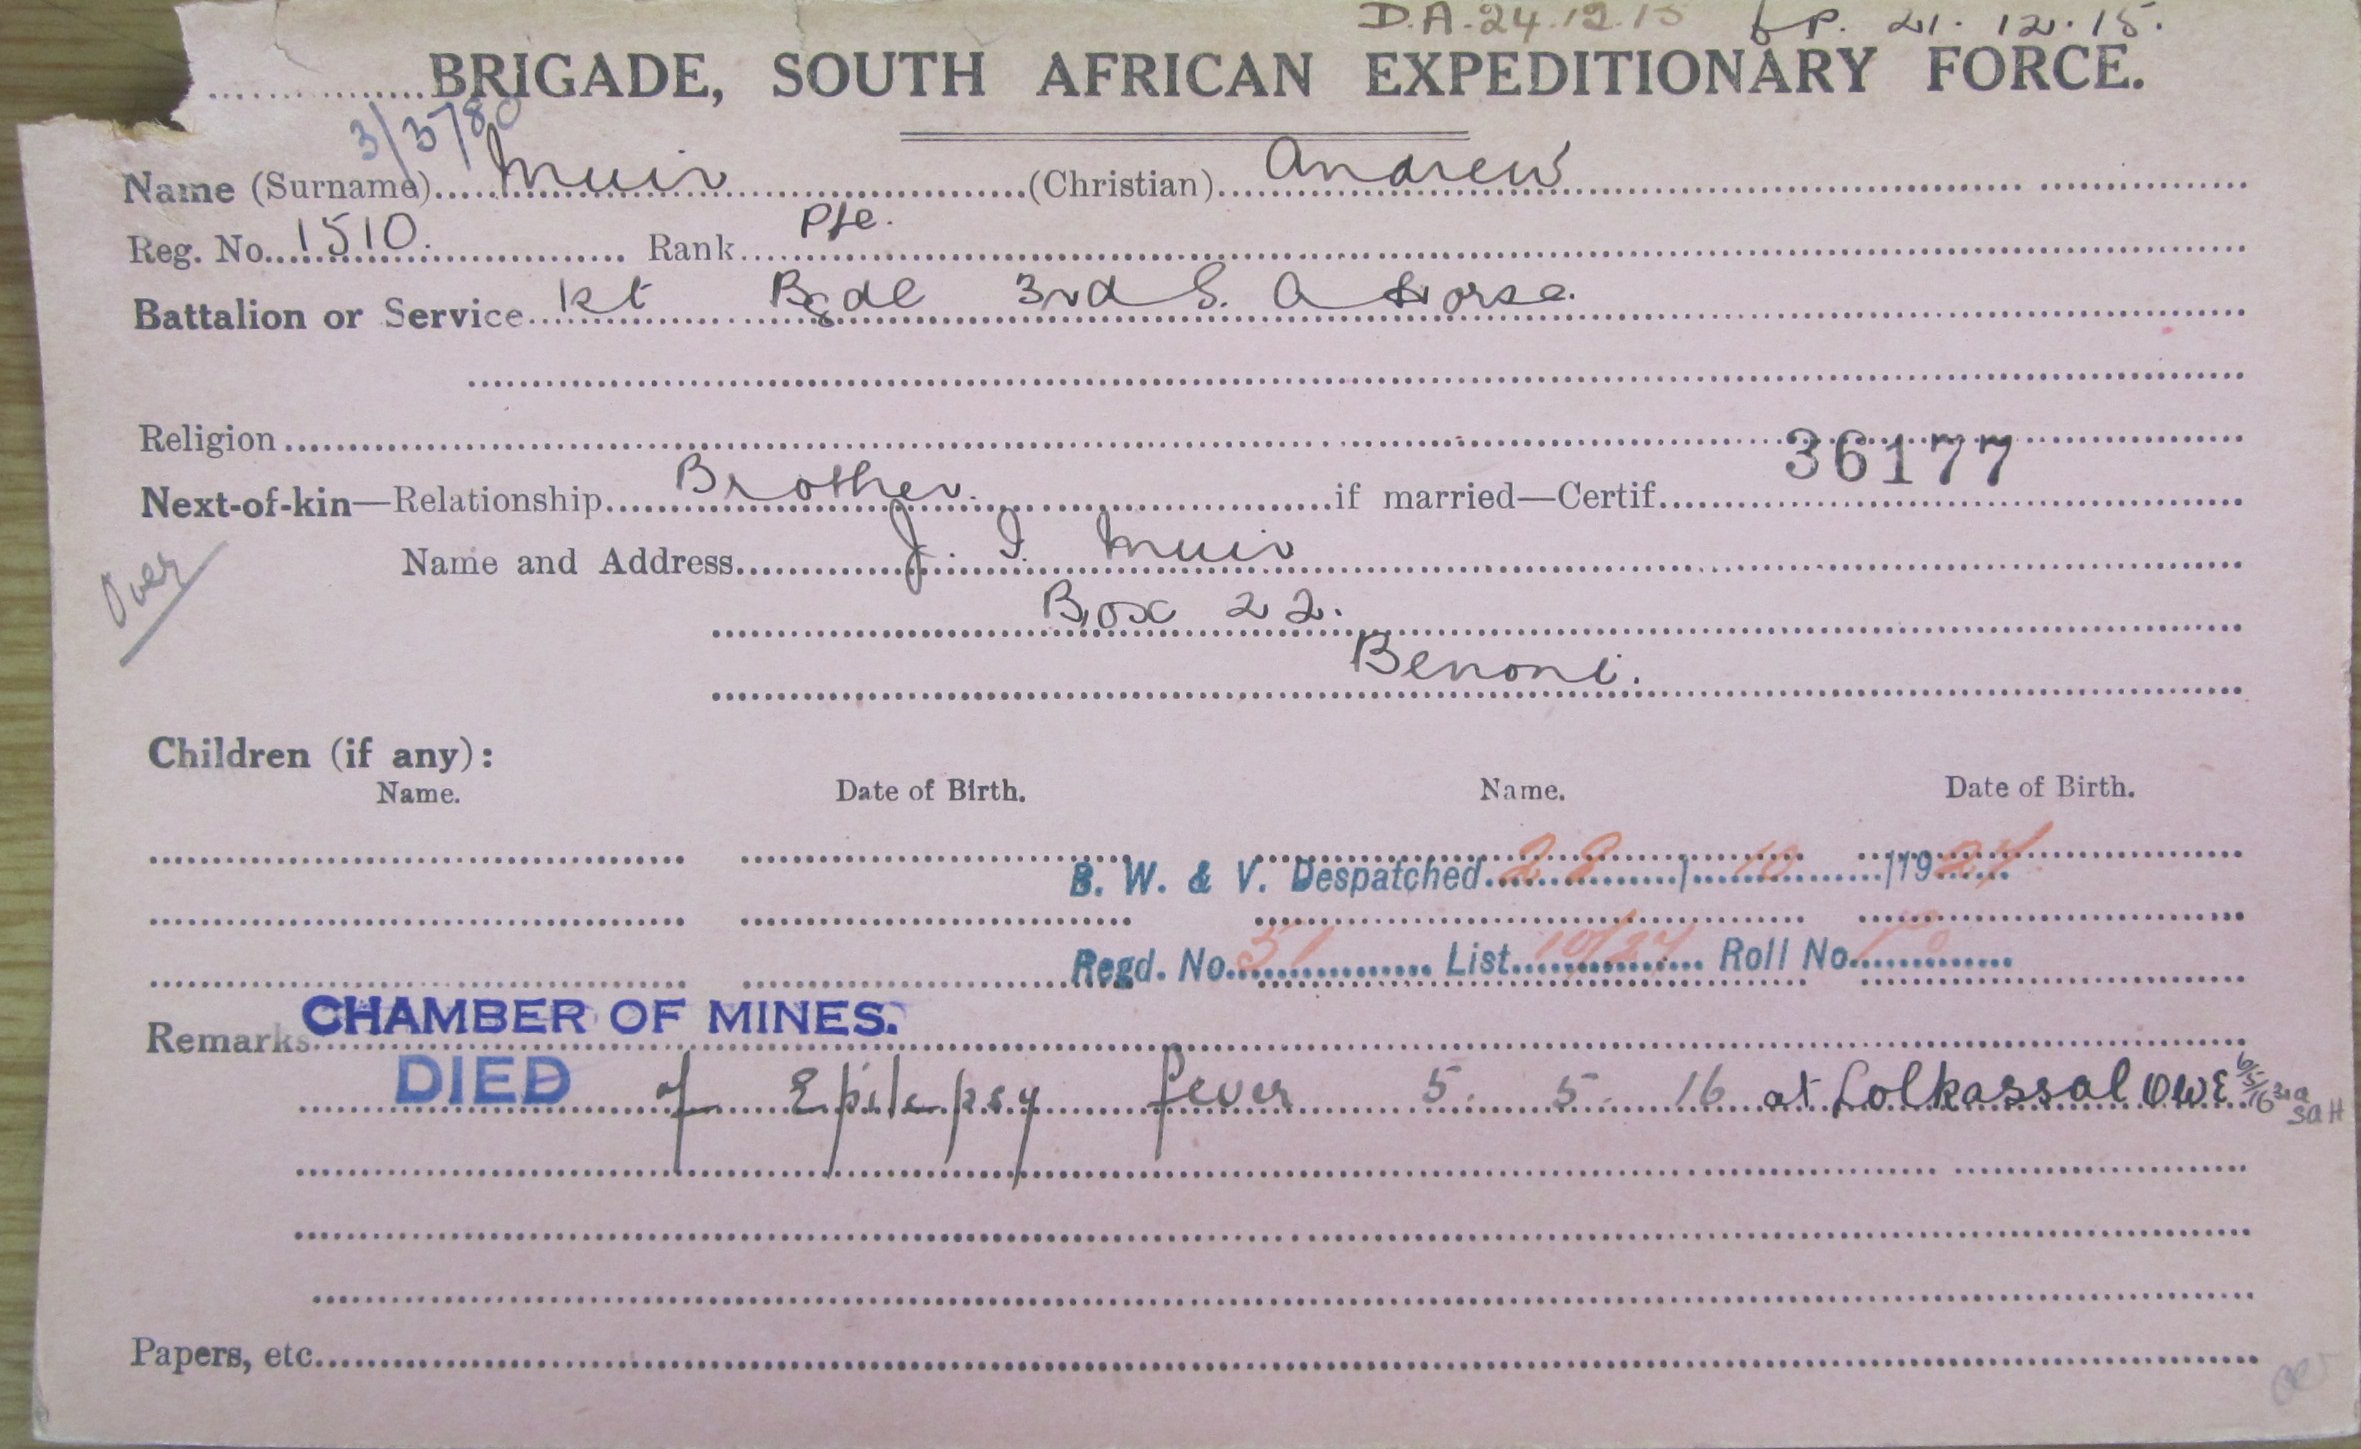 D.A. 24.12.15 fp. 21. 12. 15.
BRIGADE, SOUTH AFRICAN EXPEDITIONARY FORCE.
3/3780
Name (Surname) Muir (Christian) Andrew
Reg. No. 1510. Rank Pte.
Battalion or Service Bgde 3rd S. A Horse.
Religion
36177
Next-of-kin—Relationship Brother. if married—Certif.
Over
Name and Address J. I. Muir
Box 22.
Benoni.
Children (if any):
Name. Date of Birth. Name. Date of Birth.
B. W. & V. Despatched 28/10/1924
Regd. No. 51 List 10/24 Roll No.
CHAMBER OF MINES.
Remarks
DIED of Epilepsy fever 5. 5. 16 at Lolkassal 6/5/16 3rd SAH
Papers, etc.